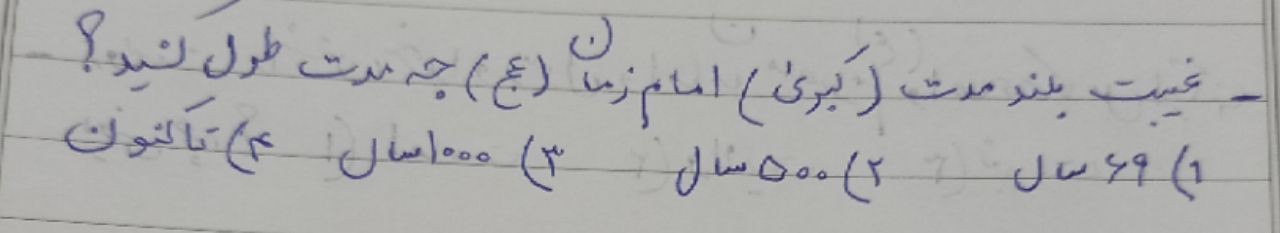 - غیبت بلند مدت (کبریٰ) امام زمان (عج) چه مدت طول کشید؟
۱) ۶۹ سال ۲) ۵۰۰ سال ۳) ۱۰۰۰ سال ۴) تاکنون